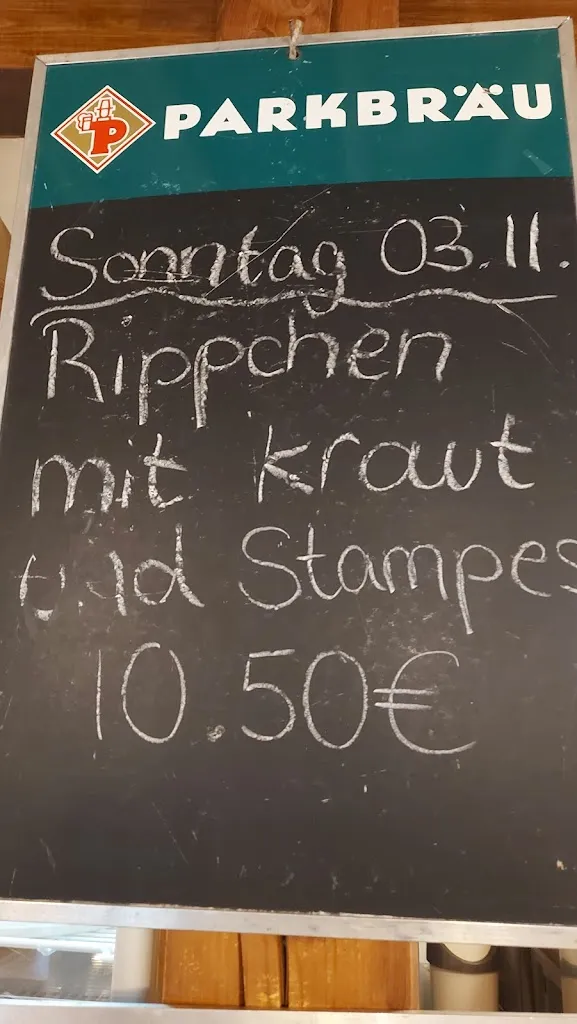 P PARKBRÄU
Sonntag 03.11.
Rippchen
mit kraut
und Stampes
10.50€